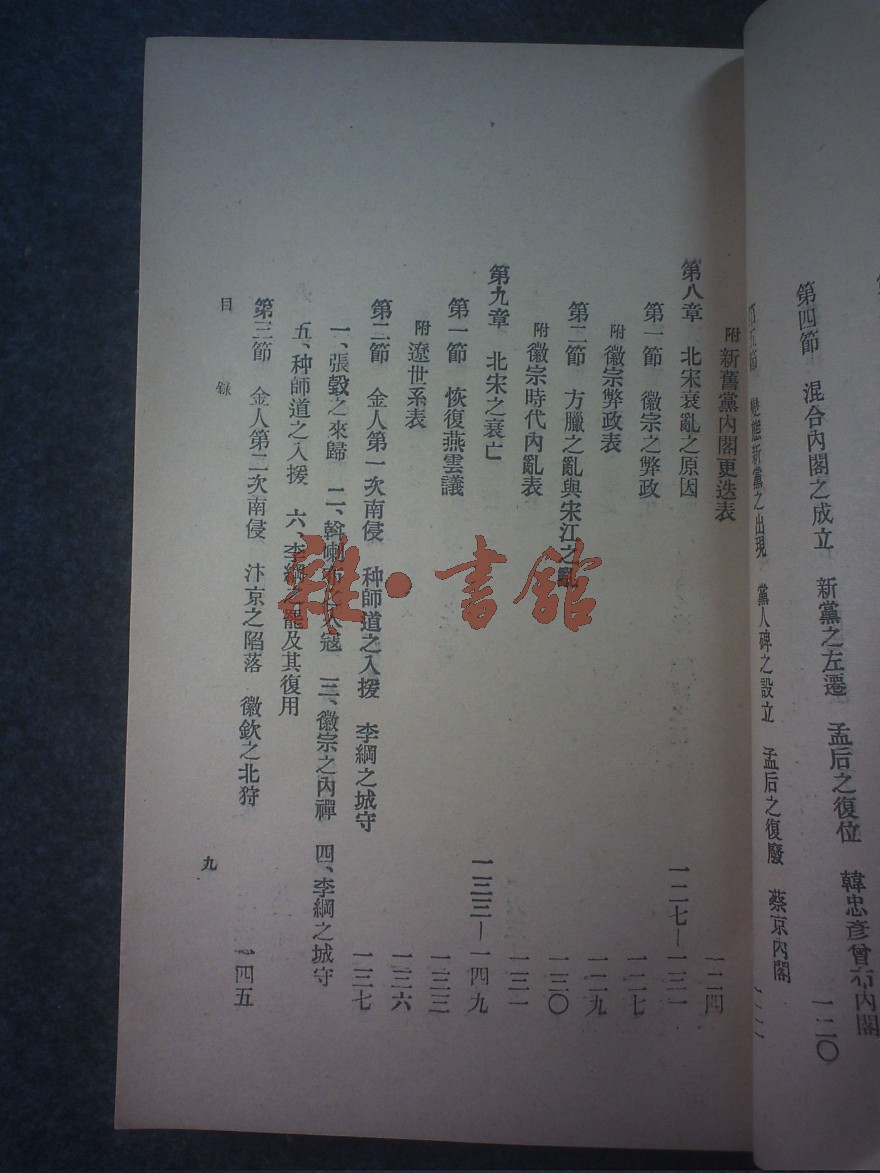 第四節 混合內閣之成立 新黨之左遷 孟后之復位 韓忠彥曾布內閣 一二〇
變態新黨之出現 黨人碑之設立 孟后之復廢 蔡京內閣
附 新舊黨內閣更迭表 一二四
第八章 北宋衰亂之原因 一二七—一三一
第一節 徽宗之弊政 一二七
附 徽宗弊政表 一二九
第二節 方臘之亂與宋江之亂 一三〇
附 徽宗時代內亂表 一三一
第九章 北宋之衰亡 一三三—一四九
第一節 恢復燕雲議 一三三
附 遼世系表 一三六
第二節 金人第一次南侵 种師道之入援 李綱之城守 一三七
一、張瑴之來歸 二、斡喇布之入寇 三、徽宗之內禪 四、李綱之城守
五、种師道之入援 六、李綱之罷及其復用
第三節 金人第二次南侵 汴京之陷落 徽欽之北狩 一四五
目錄 九
雜·書館